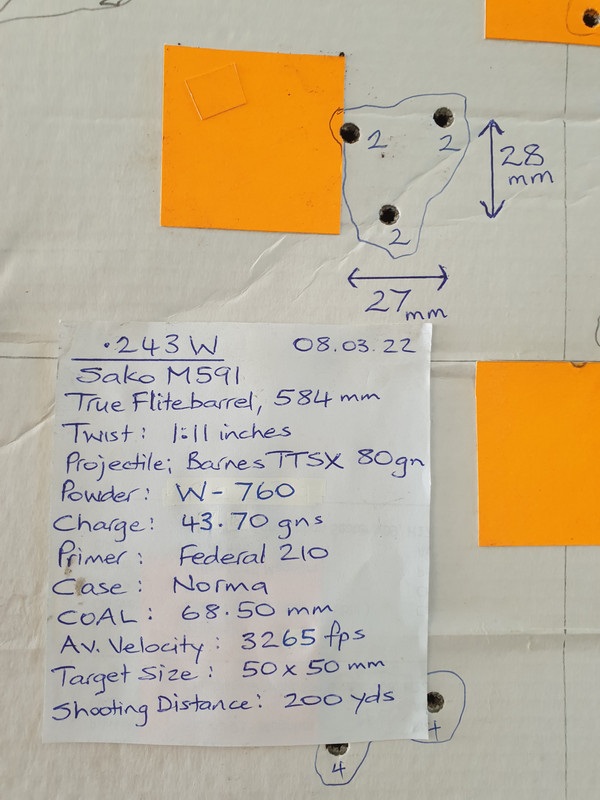 2
2
2
28
mm
27 mm
.243 W 08.03.22
Sako M591
True Flitebarrel, 584 mm
Twist: 1:11 inches
Projectile; Barnes TTSX 80gn
Powder: W-760
Charge: 43.70 gns
Primer: Federal 210
Case: Norma
COAL: 68.50 mm
Av. Velocity: 3265 fps
Target Size: 50 x 50 mm
Shooting Distance: 200 yds
4